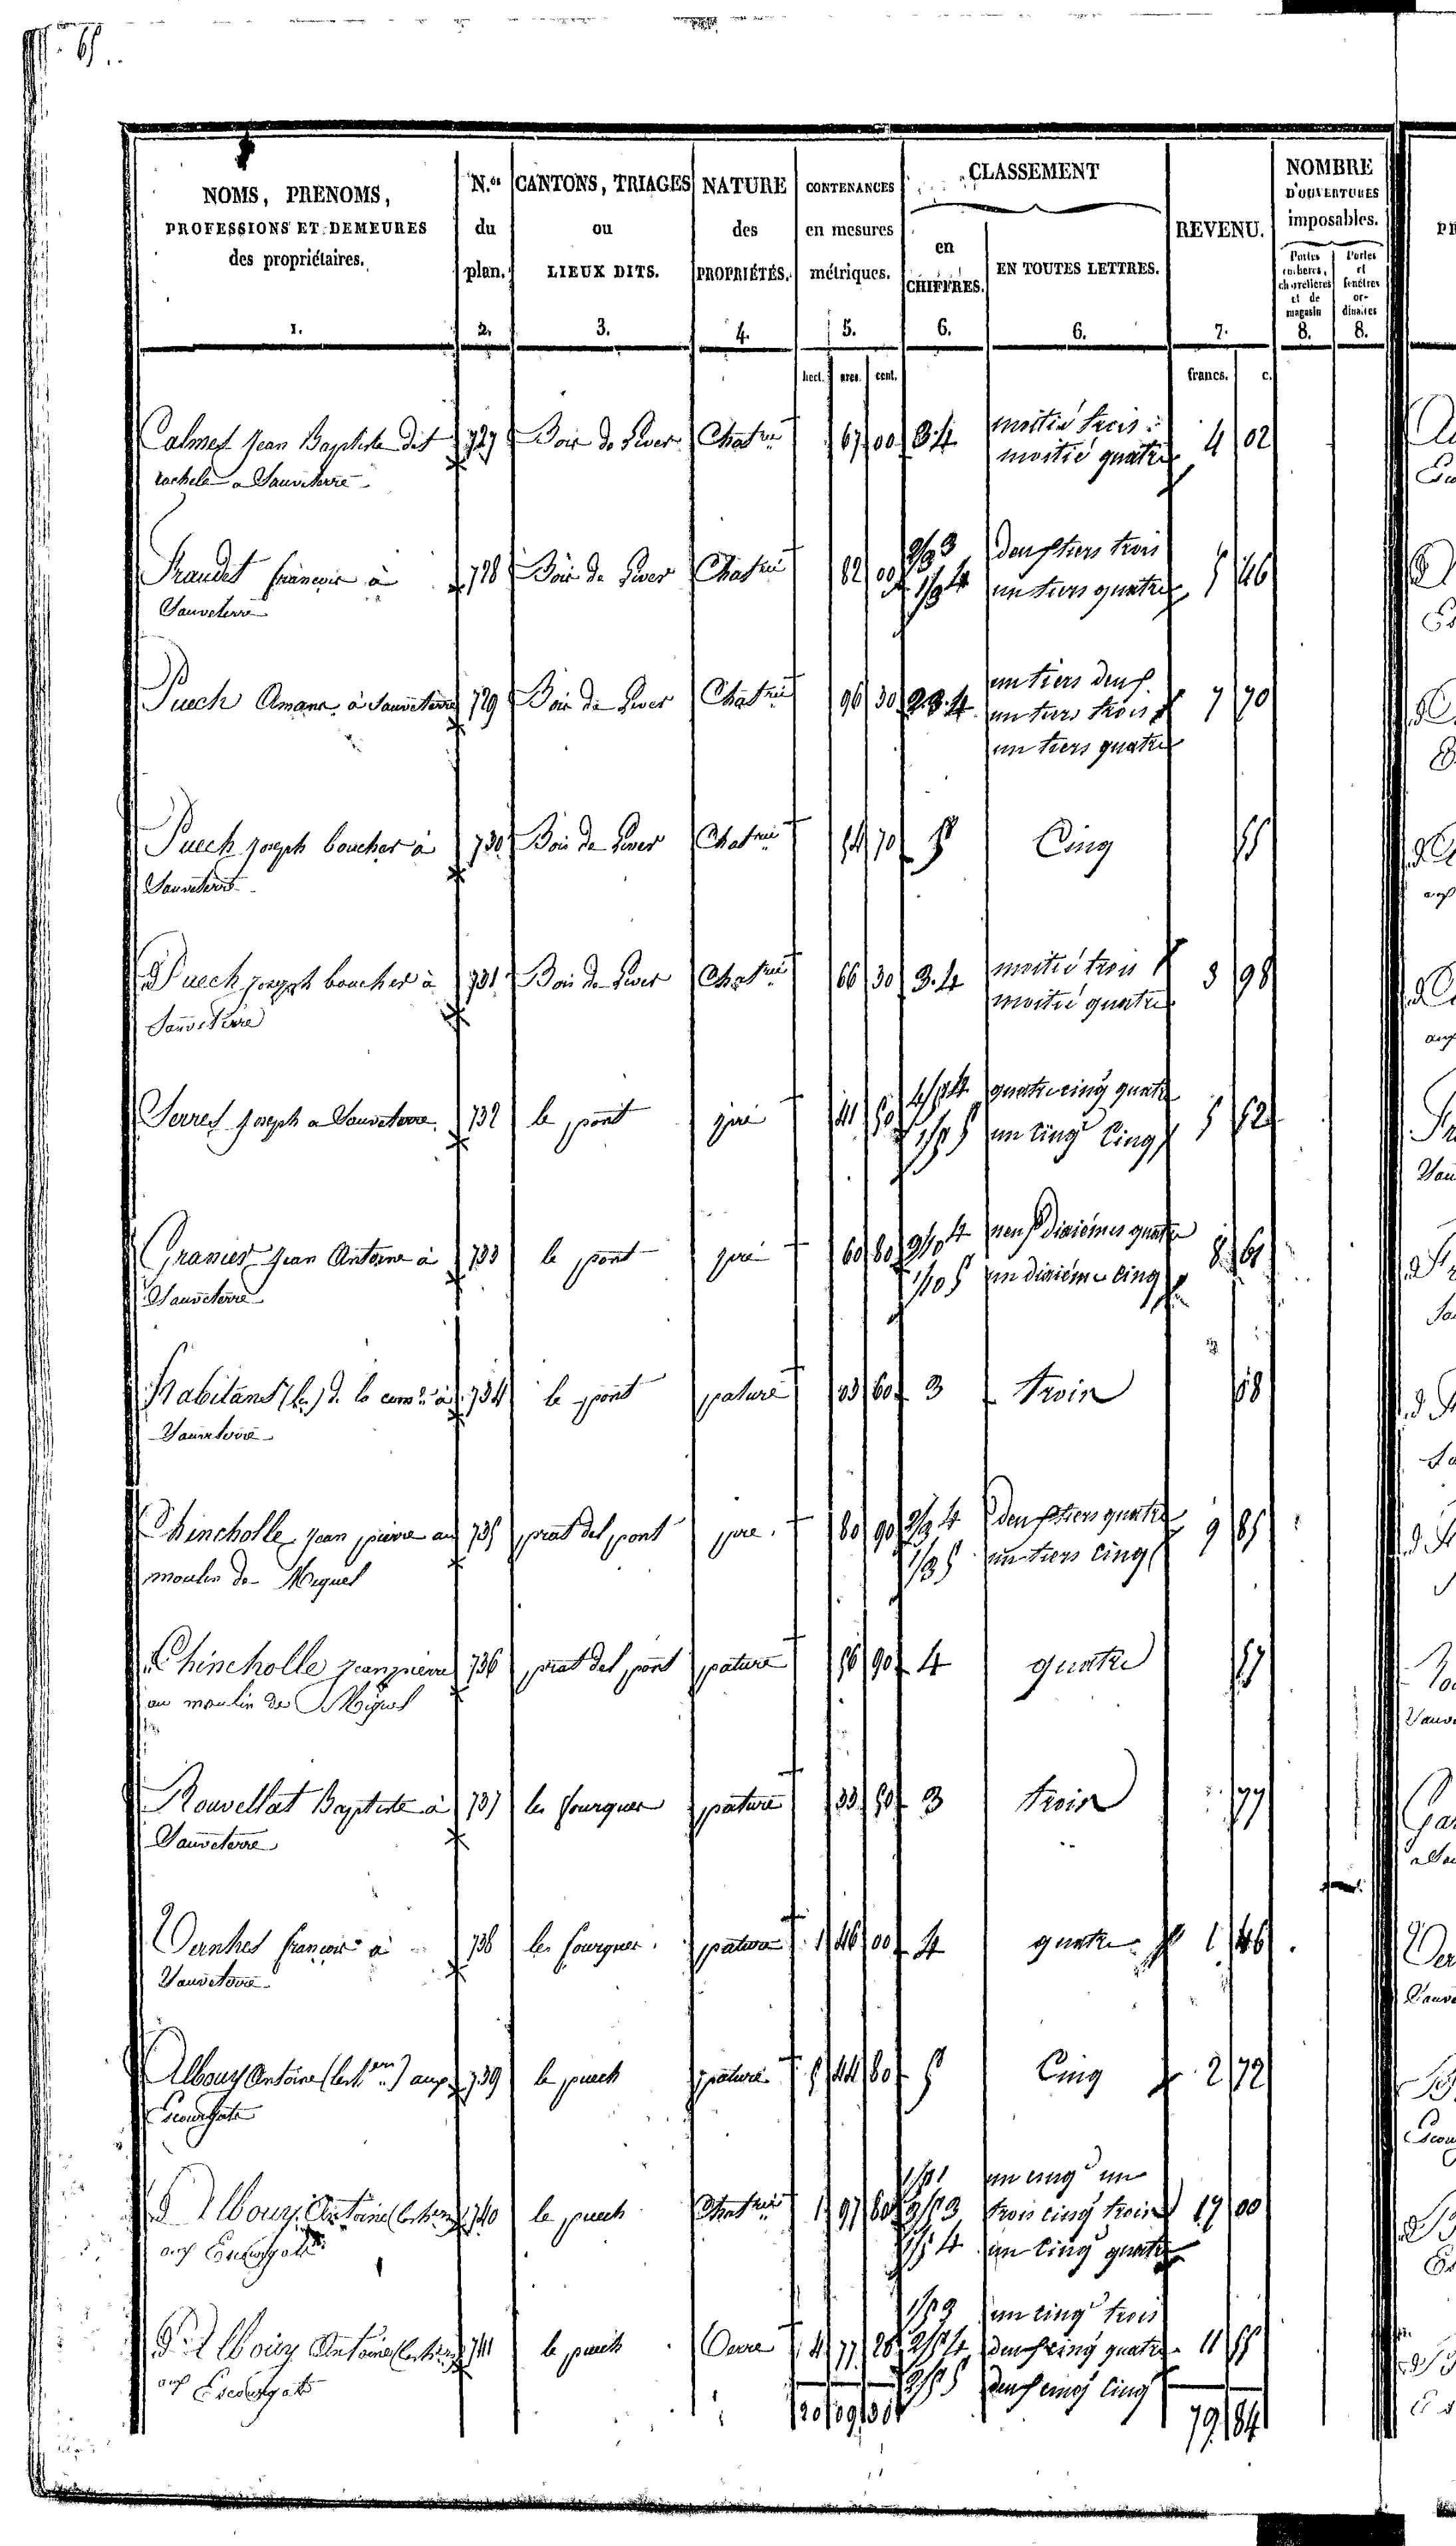 65
NOMS, PRENOMS,
PROFESSIONS ET DEMEURES
des propriétaires.
1.
N.os
du
plan.
2.
CANTONS, TRIAGES
ou
LIEUX DITS.
3.
NATURE
des
PROPRIÉTÉS.
4.
CONTENANCES
en mesures
métriques.
5.
CLASSEMENT
en
CHIFFRES.
6.
EN TOUTES LETTRES.
6.
REVENU.
7.
NOMBRE
D'OUVERTURES
imposables.
Portes
cocheres,
charretieres
et de
magasin
8.
Portes
et
fenêtres
or-
dinaires
8.
hect. ares. cent. francs. c.
Calmes Jean Baptiste dit 727 Bois de Chatrie 67 00 3.4 moitié trois 4 02
moitié quatre
a Sauveterre
françois à 728 Bois de Chatrie 82 00 2/3 3 deux tiers trois 5 46
Sauveterre 1/3 4 un tiers quatre
Puech Amans à Sauveterre 729 Bois de Chatrie 96 30 2.3.4 un tiers deux 7 70
un tiers trois
un tiers quatre
Puech joseph boucher à 730 Bois de Chatrie 54 70 5 Cinq 55
Sauveterre
d Puech joseph boucher à 731 Bois de Chatrie 66 30 3.4 moitié trois 3 98
Sauveterre moitié quatre
Serres joseph a Sauveterre 732 le pont pré 41 50 4/5 4 quatre cinq quatre 5 62
1/5 5 un cinq Cinq
Granier Jean Antoine à 733 le pont pré 60 80 9/10 4 neuf dixiémes quatre 8 61
Sauveterre 1/10 5 un dixiéme Cinq
habitans (les) de la com.e à 734 le pont pature 03 60 3 trois 08
Sauveterre
Chincholle Jean pierre au 735 prat del pont pré 80 90 2/3 4 deux tiers quatre 9 85
moulin de Miquel 1/3 5 un tiers Cinq
Chincholle jean pierre 736 prat del pont pature 56 90 4 quatre 57
au moulin de Miquel
Rouvellat Baptiste à 737 les fourques pature 33 50 3 trois 77
Sauveterre
Vernhes françois à 738 les fourques pature 1 46 00 4 quatre 1 46
Sauveterre
Albouy Antoine aux 739 le puech pature 5 44 80 5 Cinq 2 72
Escourgats
d Albouy Antoine 740 le puech Chatrie 1 97 60 1/5 1 un cinq un 17 00
3/5 3 trois cinq trois
aux Escourgats 1/5 4 un cinq quatre
d Albouy Antoine 741 le puech 4 77 1/5 3 un cinq trois 11 55
2/5 4 deux cinq quatre
aux Escourgats 2/5 5 deux cinq cinq
20 09 30 79 84